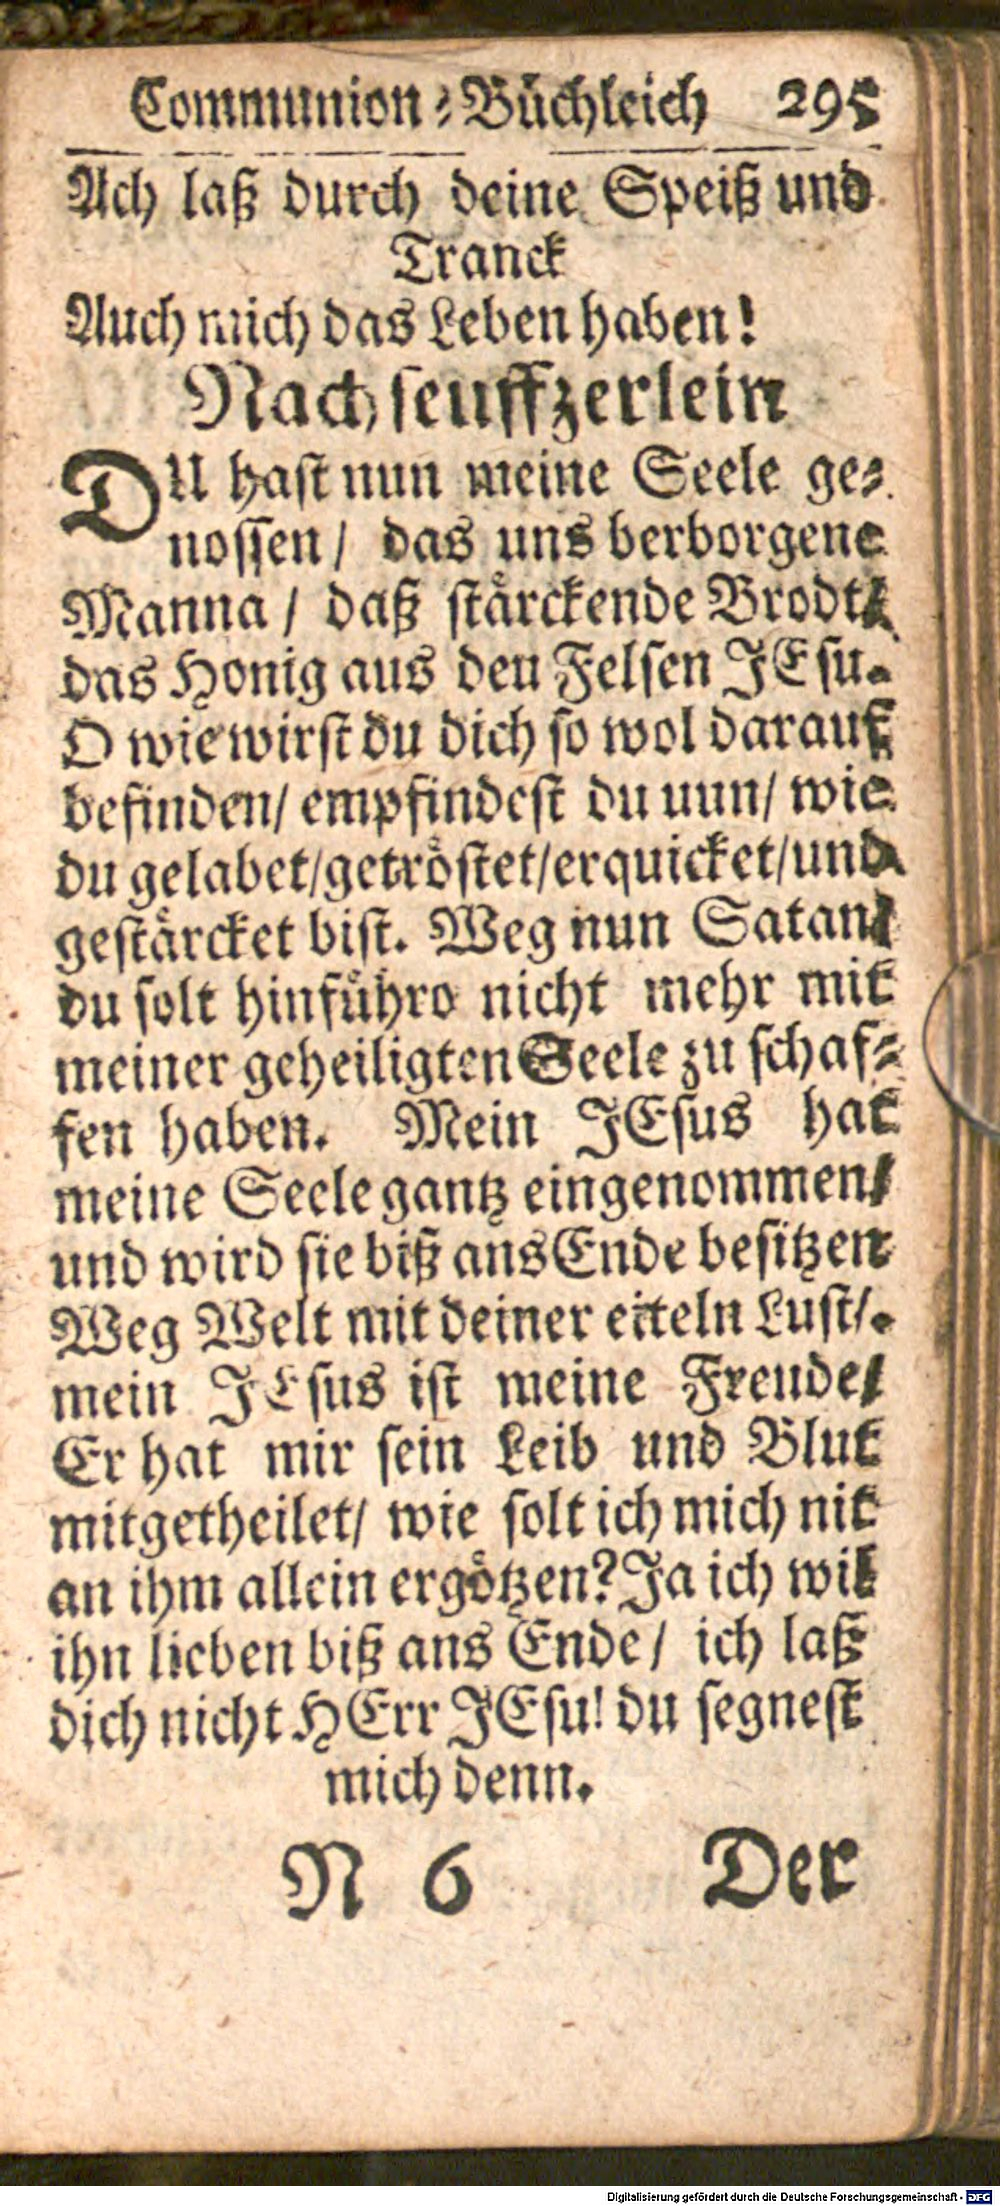 Communion⸗Büchleich 295
Ach laß durch deine Speiß und
Tranck
Auch mich das Leben haben!
Nachseuffzerlein
DU hast nun meine Seele ge⸗
nossen/ das uns berborgene
Manna/ daß stärckende Brodt/
das Honig aus den Felsen JEsu.
O wie wirst du dich so wol darauf
befinden/ empfindest du uun/ wie
du gelabet/getröstet/erquicket/und
gestärcket bist. Weg nun Satan/
du solt hinführo nicht mehr mit
meiner geheiligten Seele zu schaf⸗
fen haben. Mein JEsus hat
meine Seele gantz eingenommen/
und wird sie biß ans Ende besitzen
Weg Welt mit deiner eiteln Lust/.
mein JEsus ist meine Freude/
Er hat mir sein Leib und Blut
mitgetheilet/ wie solt ich mich nit
an ihm allein ergötzen? Ja ich wil
ihn lieben biß ans Ende/ ich laß
dich nicht HErr JEsu! du segnest
mich denn.
N 6 Der
Digitalisierung gefördert durch die Deutsche Forschungsgemeinschaft - DFG